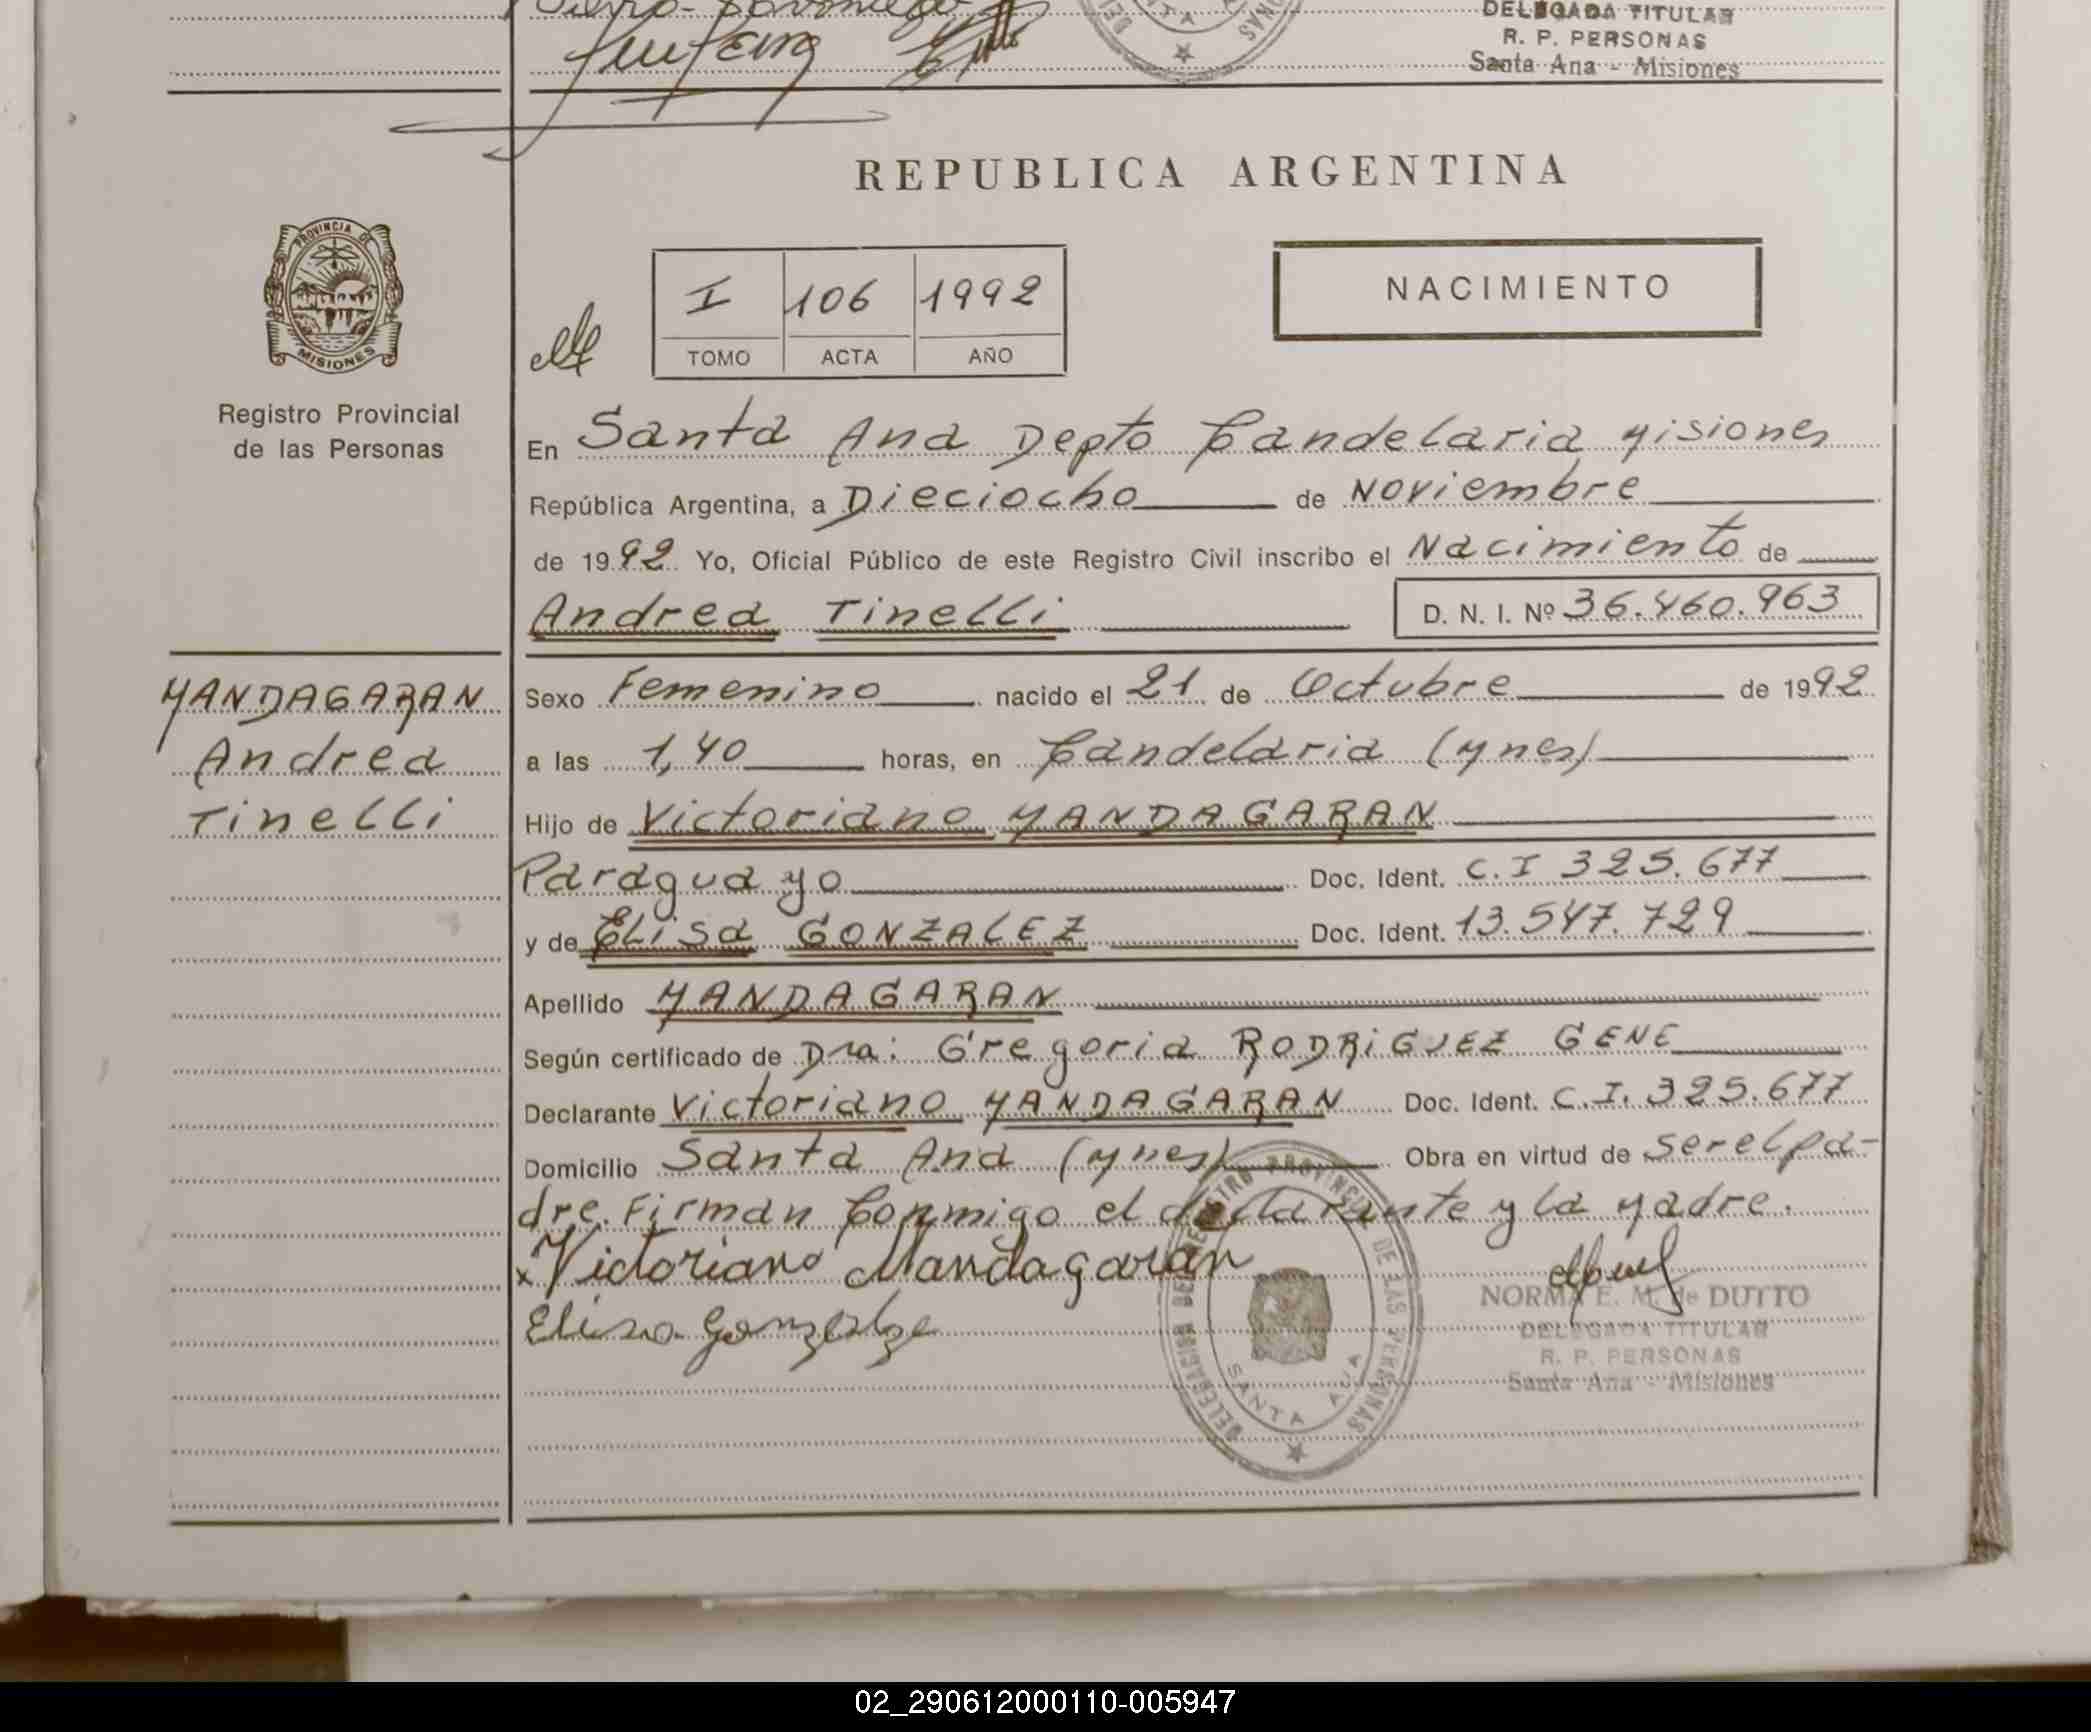 DELEGADA TITULAR
R. P. PERSONAS
Santa Ana - Misiones
REPUBLICA ARGENTINA
PROVINCIA DE
MISIONES
Registro Provincial
de las Personas
I 106 1992
TOMO ACTA AÑO
NACIMIENTO
En Santa Ana Depto Candelaria Misiones
República Argentina, a Dieciocho de Noviembre
de 1992 Yo, Oficial Público de este Registro Civil inscribo el Nacimiento de
Andrea Tinelli D. N. I. Nº 36.460.963
MANDAGARAN
Andrea
Tinelli
Sexo Femenino nacido el 21 de Octubre de 1992
a las 1,40 horas, en Candelaria (Mnes)
Hijo de Victoriano MANDAGARAN
Paraguayo Doc. Ident. C.I 325.677
y de Elisa GONZALEZ Doc. Ident. 13.547.729
Apellido MANDAGARAN
Según certificado de Dra: Gregoria RODRIGUEZ GENE
Declarante Victoriano MANDAGARAN Doc. Ident. C.I. 325.677
Domicilio Santa Ana (Mnes) Obra en virtud de ser el pa-
dre. Firman Conmigo el declarante y la Madre.
x Victoriano Mandagaran
Elisa Gonzalez
DELEGACION DEL REGISTRO PROVINCIAL DE LAS PERSONAS
SANTA ANA
NORMA E. M. de DUTTO
DELEGADA TITULAR
R. P. PERSONAS
Santa Ana - Misiones
02_290612000110-005947